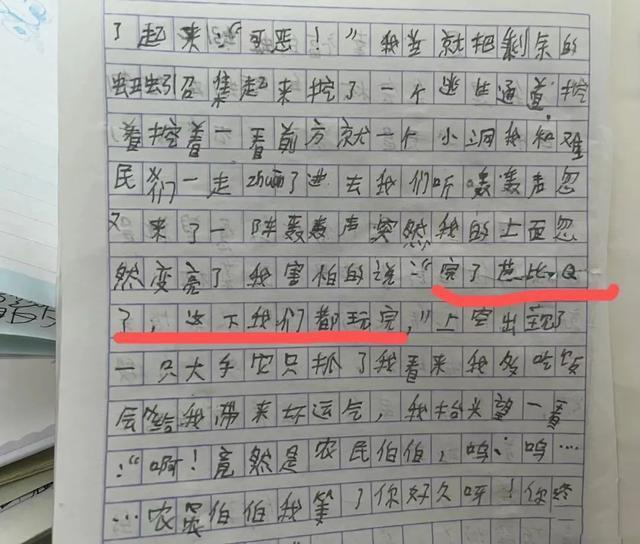 了起来:“可恶！”我并就把剩余的
蚯蚓召集起来挖了一个逃生通道,挖
着挖着一看前方就一个小洞我和难
民们一走zhuan了进去我们听轰轰声忽
又来了一阵轰轰声突然我的上面忽
然变亮了我害怕的说:“完了芭比Q
了，这下我们都玩完，”上空出现了
一只大手农只抓了我看来我多吃饭
会给我带来坏运气，我抬头望一看
:“啊！竟然是农民伯伯，呜呜…
…农民伯伯我等了你好久呀！你终